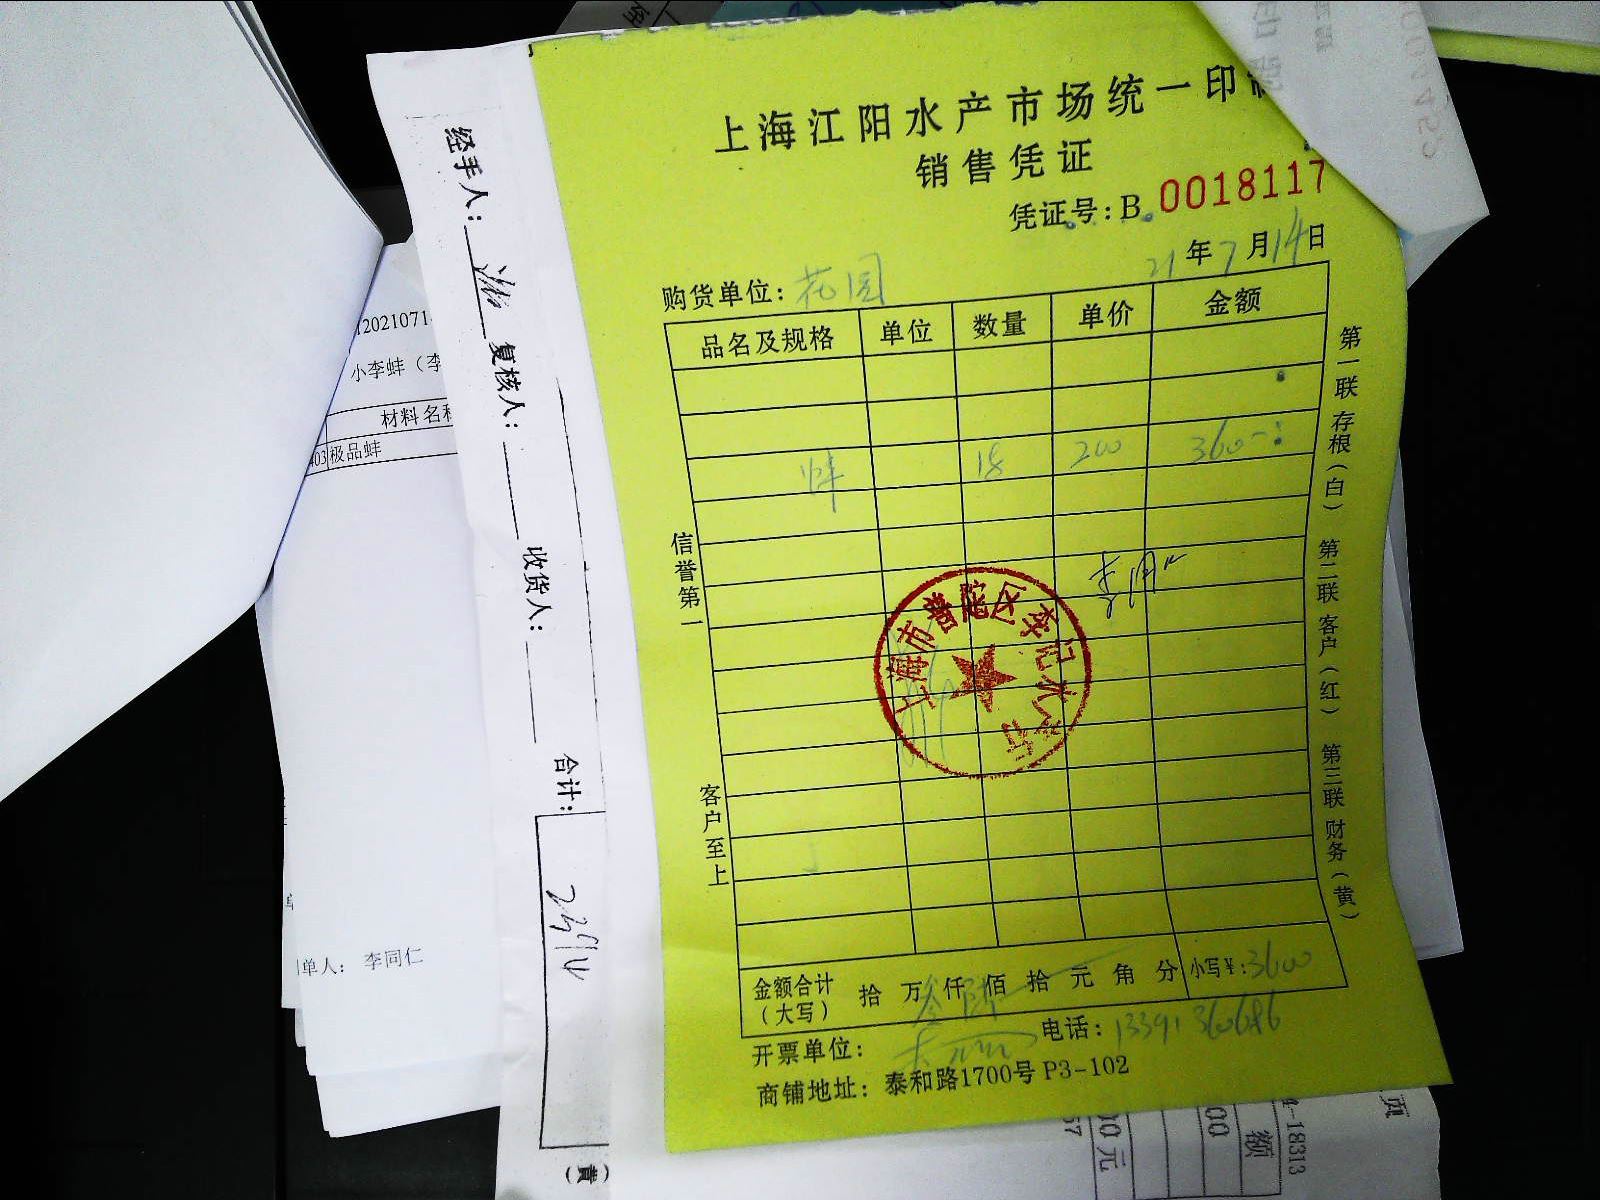 上海江阳水产市场统一印
销售凭证
凭证号:B 0018117
21年7月14日
购货单位: 花园
品名及规格 单位 数量 单价 金额
蚌 18 200 3600-
信誉第一
客户至上
第一联 存根(白) 第二联 客户(红) 第三联 财务(黄)
上海市普陀区李记水产行
金额合计(大写) 拾 万 叁 仟 陆 佰 拾 元 角 分 小写¥:3600
开票单位: 电话: 13391360686
商铺地址: 泰和路1700号 P3-102
经手人: 复核人: 收货人: 合计:
(黄)
小李蚌(李
材料名称
403 极品蚌
单人: 李同仁
4-18313
额
00
00元
57
页